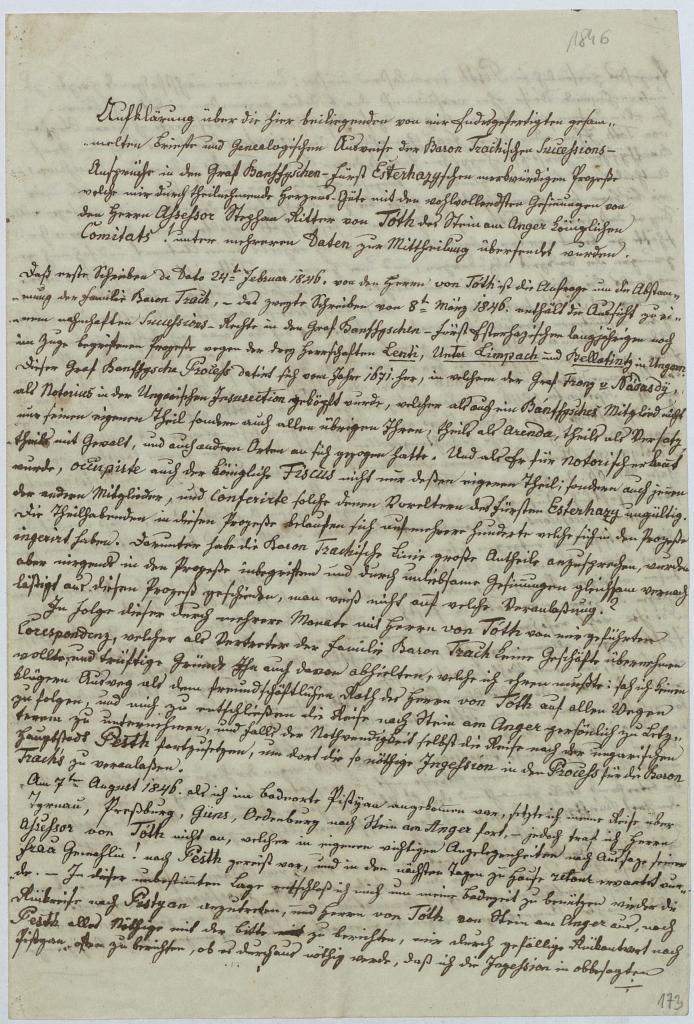 1846
Aufklärung über die hier beiliegenden von mir Endesgefertigten gesam-
-melten Briefe und Genealogischen Ausweise der Baron Trachischen Successions-
Ansprüche in den Graf Banffyschen-Fürst Esterhazyschen merkwürdigen Prozeße
welche mir durch theilnehmende Herzens-Güte mit den wohlvollendsten Gesinungen von
den Herrn Assessor Stephan Ritter von Toth des Stein am Anger Königlichen
Comitats! unter mehreren Daten zur Mittheilung übersendet wurden.
Daß erste Schreiben de Dato 24t Februar 1846. von den Herrn von Toth ist die Anfrage um die Abstam-
-mung der Familie Baron Trach, - das zweyte Schreiben von 8t März 1846. enthält die Aussicht zu ei-
nem nahmhaften Successions-Rechte in den Graf Banffyschen-Fürst Esterhazischen langjährigen noch
im Zuge begriffenen Prozeße wegen der drey Herrschaften Lenti, Unter Limpach und Bellatintz in Ungarn.
Dieser Graf Banffysche Process datirt sich vom Jahre 1671 her, in welchem der Graf Franz v Nadasdy,
als Notorius in der Ungarischen Insurection geköpft wurde, welcher als auch ein Banffysches Mitglied nicht
nur seinen eigenen Theil sondern auch allen übrigen Ihren, theils als Arenda, theils als Versatz
theils mit Gewalt, und auch andern Orten an sich gezogen hatte. Und als Er für Notorisch erklärt
wurde, occupirte auch der königliche Fiscus nicht nur deßen eigenen Theil; sondern auch jenen
der andern Mitglieder, und conferirte solche denen Voreltern des Fürsten Esterhazy ungültig.
Die Theilhabenden in diesen Prozeße belaufen sich auf mehrere Hunderte welche sich in den Prozeße
ingerirt haben. Darunter habe die Baron Trachische Linie große Antheile anzusprechen, werden
aber nirgends in den Prozeße inbegriffen und durch unliebsame Gesinungen gleichsam vernach
läßigt aus diesen Prozeß geschieden, man weiß nicht auf welche Veranlaßung?
In Folge dieser durch mehrere Monate mit Herrn von Toth von mir geführten
Correspondenz, welcher als Vertreter der Familie Baron Trach keine Geschäfte übernehmen
wollte, und triftige Gründe Ihn auch davon abhielten, welche ich ehren mußte: sah ich keinen
klügern Ausweg als dem freundschäftlichen Rath des Herrn von Toth auf allen Wegen
zu folgen, und mich zu entschließen die Reise nach Stein am Anger persönlich zu Letz-
terem zu unternehmen, und falls der Nothwendigkeit selbst die Reise nach der ungarischen
Hauptstadt Pesth fortzusetzen, um dort die so nöthige Ingession in den Process für die Baron
Trachs zu veranlaßen.
Am 7ten August 1846. als ich im Badeorte Pistyan angekommen war, setzte ich meine Reise über
Tyrnau, Preßburg, Güns, Oedenburg nach Stein am Anger fort, - jedoch traf ich Herrn
Assessor von Toth nicht an, welcher in eigenen wichtigen Angelegenheiten nach Aussage seiner
Frau Gemahlin! nach Pesth gereist war, und in den nächsten Tagen zu Hause retour erwartet wur-
de. - In dieser unbestimmten Lage entschloß ich mich um meine Badezeit zu benützen wieder die
Rückreise nach Pistyan anzutreten, und Herrn von Toth von Stein am Anger aus, nach
Pesth alles Nöthige mit der Bitte zu berichten, mir durch gefällige Rückantwort nach
Pistyan, zu berichten, ob es durchaus nöthig werde, daß ich die Ingession in obbesagten
173